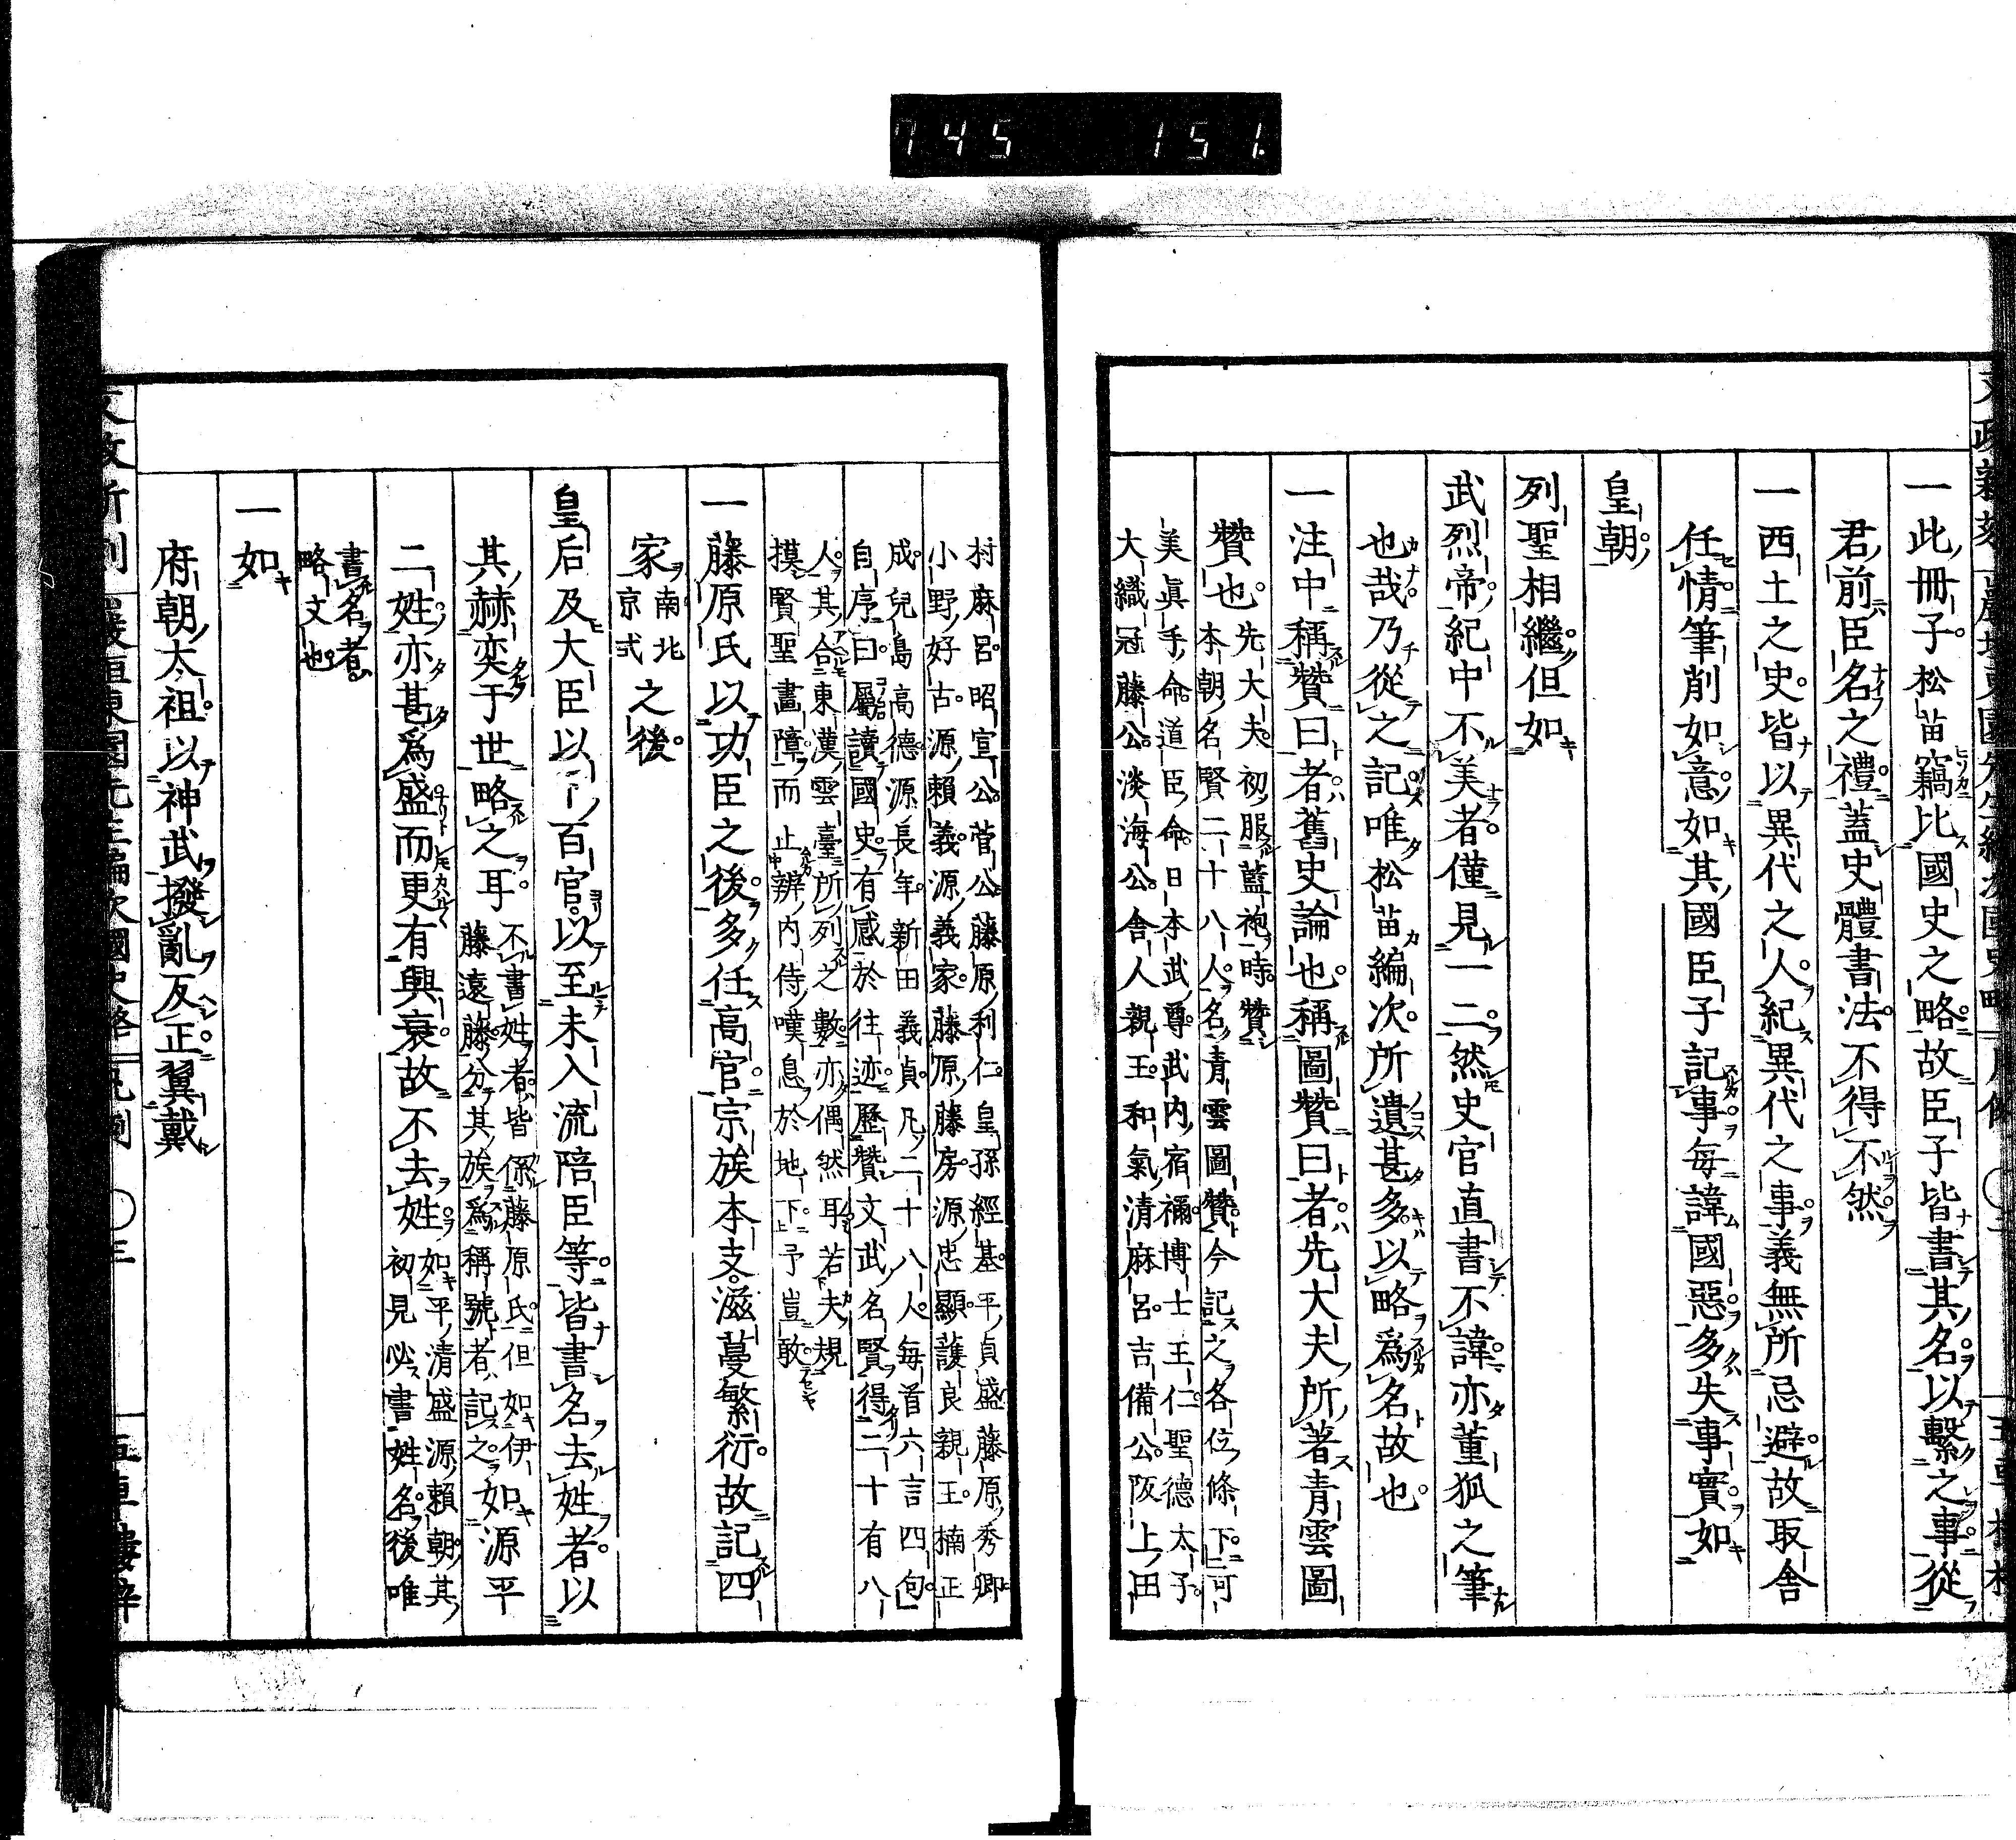 745 151.
一此冊子松苗竊比國史之略故臣子皆書其名以繫之事從
君前臣名之禮蓋史體書法不得不然
一西土之史皆以異代之人紀異代之事義無所忌避故取舍
任情筆削如意如其國臣子記事每諱國惡多失事實如
皇朝
列聖相繼但如
武烈帝紀中不美者僅見一二然史官直書不諱亦董狐之筆
也哉乃從之記唯松苗編次所遺甚多以略爲名故也
一注中稱贊曰者舊史論也稱圖贊曰者先大夫所著青雲圖
贊也
先大夫初服藍袍時贊
本朝名賢二十八人名青雲圖贊今記之各位條下可
美眞手命道臣命日本武尊武内宿禰博士王仁聖德太子
大織冠藤公淡海公舍人親王和氣清麻呂吉備公阪上田
村麻呂昭宣公菅公藤原利仁皇孫經基平貞盛藤原秀卿
小野好古源賴義源義家藤原藤房源忠顯護良親王楠正
成兒島高德源長年新田義貞凡二十八人每首六言四句
自序曰屬讀國史有感於往迹歷贊文武名賢得二十有八
人其合東漢雲臺所列之數亦偶然耳若夫規
摸賢聖畫障而止辨内侍嘆息於地下予豈敢
一藤原氏以功臣之後多任高官宗族本支滋蔓繁衍故記四
家
南北
京式
之後
皇后及大臣以下百官以至未入流陪臣等皆書名去姓者以
其赫奕于世略之耳
不書姓者皆係藤原氏但如伊
藤遠藤分其族爲稱號者記之
如源平
二姓亦甚爲盛而更有興衰故不去姓
如平清盛源賴朝其
初見必書姓名後唯
書名者
略文也
一如
府朝太祖以神武撥亂反正翼戴